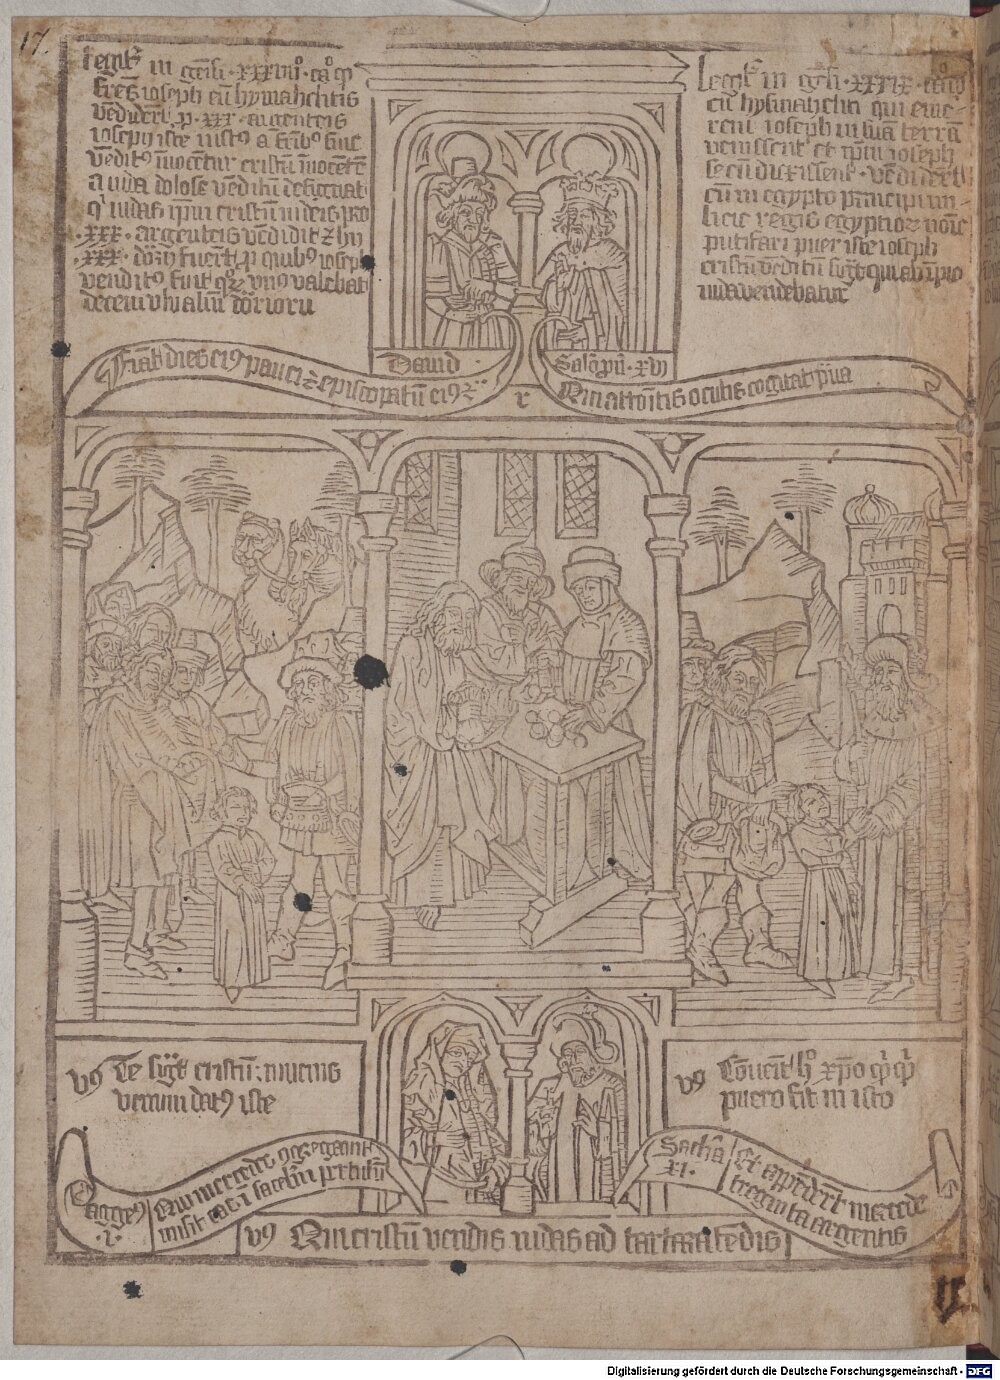 17.
Legit᷑ in gen̄si · xxxvii° · ca° q
fr̄es ioseph eū hysmahelitis
vēdider̄t p · xxx · argenteis
ioseph iste iustus a fr̄ib° suis
vēdit° innocent᷑ cristū innocentē
a iuda dolose vēditū designat
q' iudas ip̄m cristū iudeis pro
· xxx · argenteis vēdidit & hii
· xxx · fuer̄t p quib° ioseph
vendit° fuit vn° valebat
decem
Legit᷑ in gen̄ · xxxix · ca° q
cū hysmahelitis qui eme-
rant ioseph in suā terrā
venissent et ip̄m ioseph
secū duxissent · vēdider̄t
eū in egypto principi mi-
licie regis egyptior̨ noīe
putifari puer iste ioseph
cristū vēditū siḡt qui ab ipio
iuda vendebatur
Dauid
Salōpū · xvi
Fiāt dies ei9 pauci & episcopatū ei9 &
r
Qui attoītis oculis cogitat p̄ua
v9 Te sig̃t cristū : iuuenis
venundat9 iste
v9 Cōuenit h° xp̄o q̄ q̄
puero fit in isto
Agge9
· i ·
Qui mercedes 9gregauit
misit eas ī sacculū p̄tusū
Sachā
xi ·
Et appēder̄t mercede
triginta argenteis
v9 Qui cristū vendis iudas ad tartara tēdis
17
Digitalisierung gefördert durch die Deutsche Forschungsgemeinschaft - DFG